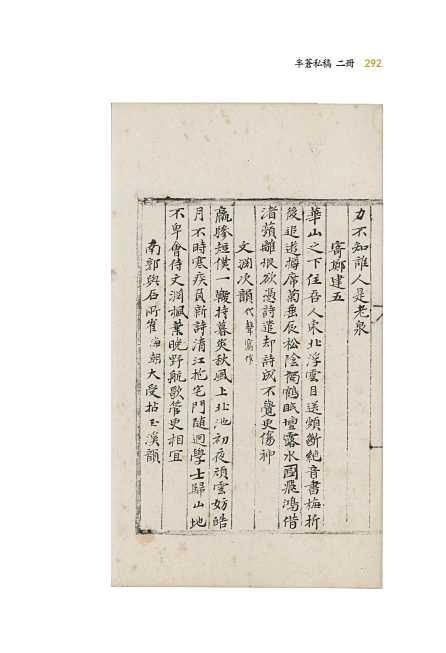 半蒼私稿 二冊 292
力不知誰人是老泉
寄鄭建五
華山之下住吾人東北浮雲目送頻斷絶音書梅折
後追遊樽席菊垂辰松陰獨鶴眠壇露水國飛鴻借
渚蘋離恨欲憑詩遣却詩成不覺更傷神
文淵次韻 代聲寫作
羸驂短僕一襆持暮炎秋風上北池初夜頑雲妨皓
月不時寒疾負新詩清江抱宅門隨迥學士歸山地
不卑會待文淵楓葉晩野航歌管更相宜
南郭與石所崔海朝大受拈玉溪韻